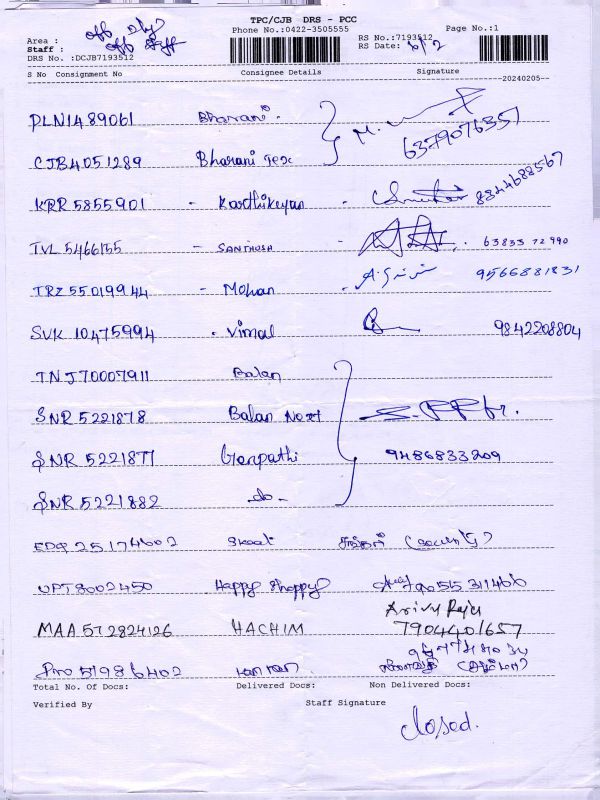 TPC/CJB DRS - PCC
Area : off
Phone No.:0422-3505555
RS No.:7193512
Page No.:1
Staff : off Staff
RS Date: 6/2
DRS No. :DCJB7193512
S No Consignment No Consignee Details Signature
20240205
PLN1489061 Bharani. } M.
6379076357
CJB4051289 Bharani Tex
KRR 5855901 - Karthikeyan - 8344688567
TVL 5466155 - SANTHOSH - 63833 72990
TRZ 55019944 - Mohan - 9566881831
SVK 10475994 . Vimal 9842208804
TNJ70007911 Balan
SNR 5221878 Balan Next
SNR 5221877 Ganpathi 9486833209
SNR 5221882 -do-
EDQ 25174602
UPT8002450 Happy Shoppy
Arivu Raja
MAA 572824126 HACHIM 7904401657
Pno 51986402
Total No. Of Docs: Delivered Docs: Non Delivered Docs:
Verified By Staff Signature
closed.